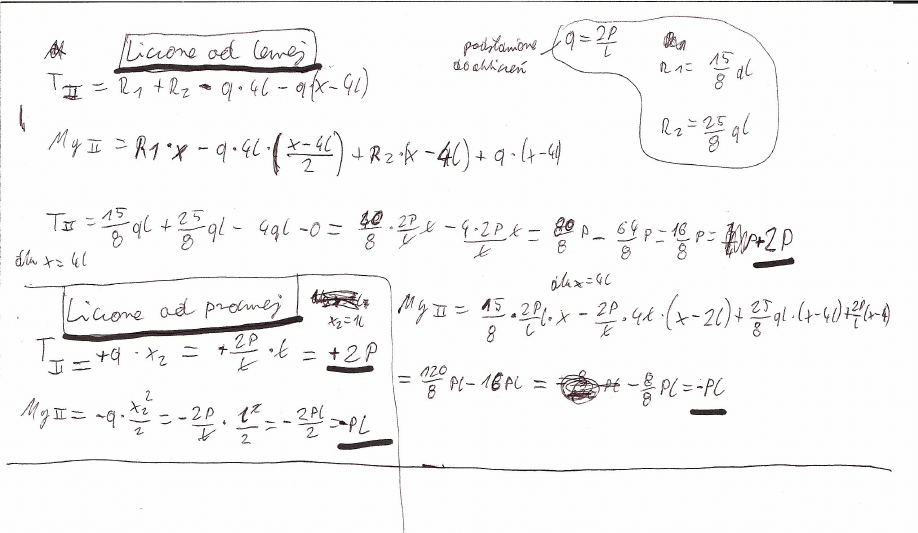 Liczone od lewej
podstawione do obliczeń
q = 2P/l
R1 = 15/8 ql
R2 = 25/8 ql
T II = R1 + R2 - q·4l - q(x-4l)
Mg II = R1·x - q·4l·((x-4l)/2) + R2·(x-4l) + q·(x-4l)
T II = 15/8 ql + 25/8 ql - 4ql - 0 = 40/8 · 2P/l l - 4·2P/l l = 80/8 P - 64/8 P = 16/8 P = +2P
dla x=4l
Liczone od prawej
x2=1l
T II = +q·x2 = +2P/l · l = +2P
Mg II = -q·x2²/2 = -2P/l · l²/2 = -2Pl/2 = -Pl
dla x=4l
Mg II = 15/8 · 2P/l l·x - 2P/l·4l·(x-2l) + 25/8 ql·(x-4l) + 2P/l(x-4)
= 120/8 Pl - 16Pl = - 8/8 Pl = -Pl